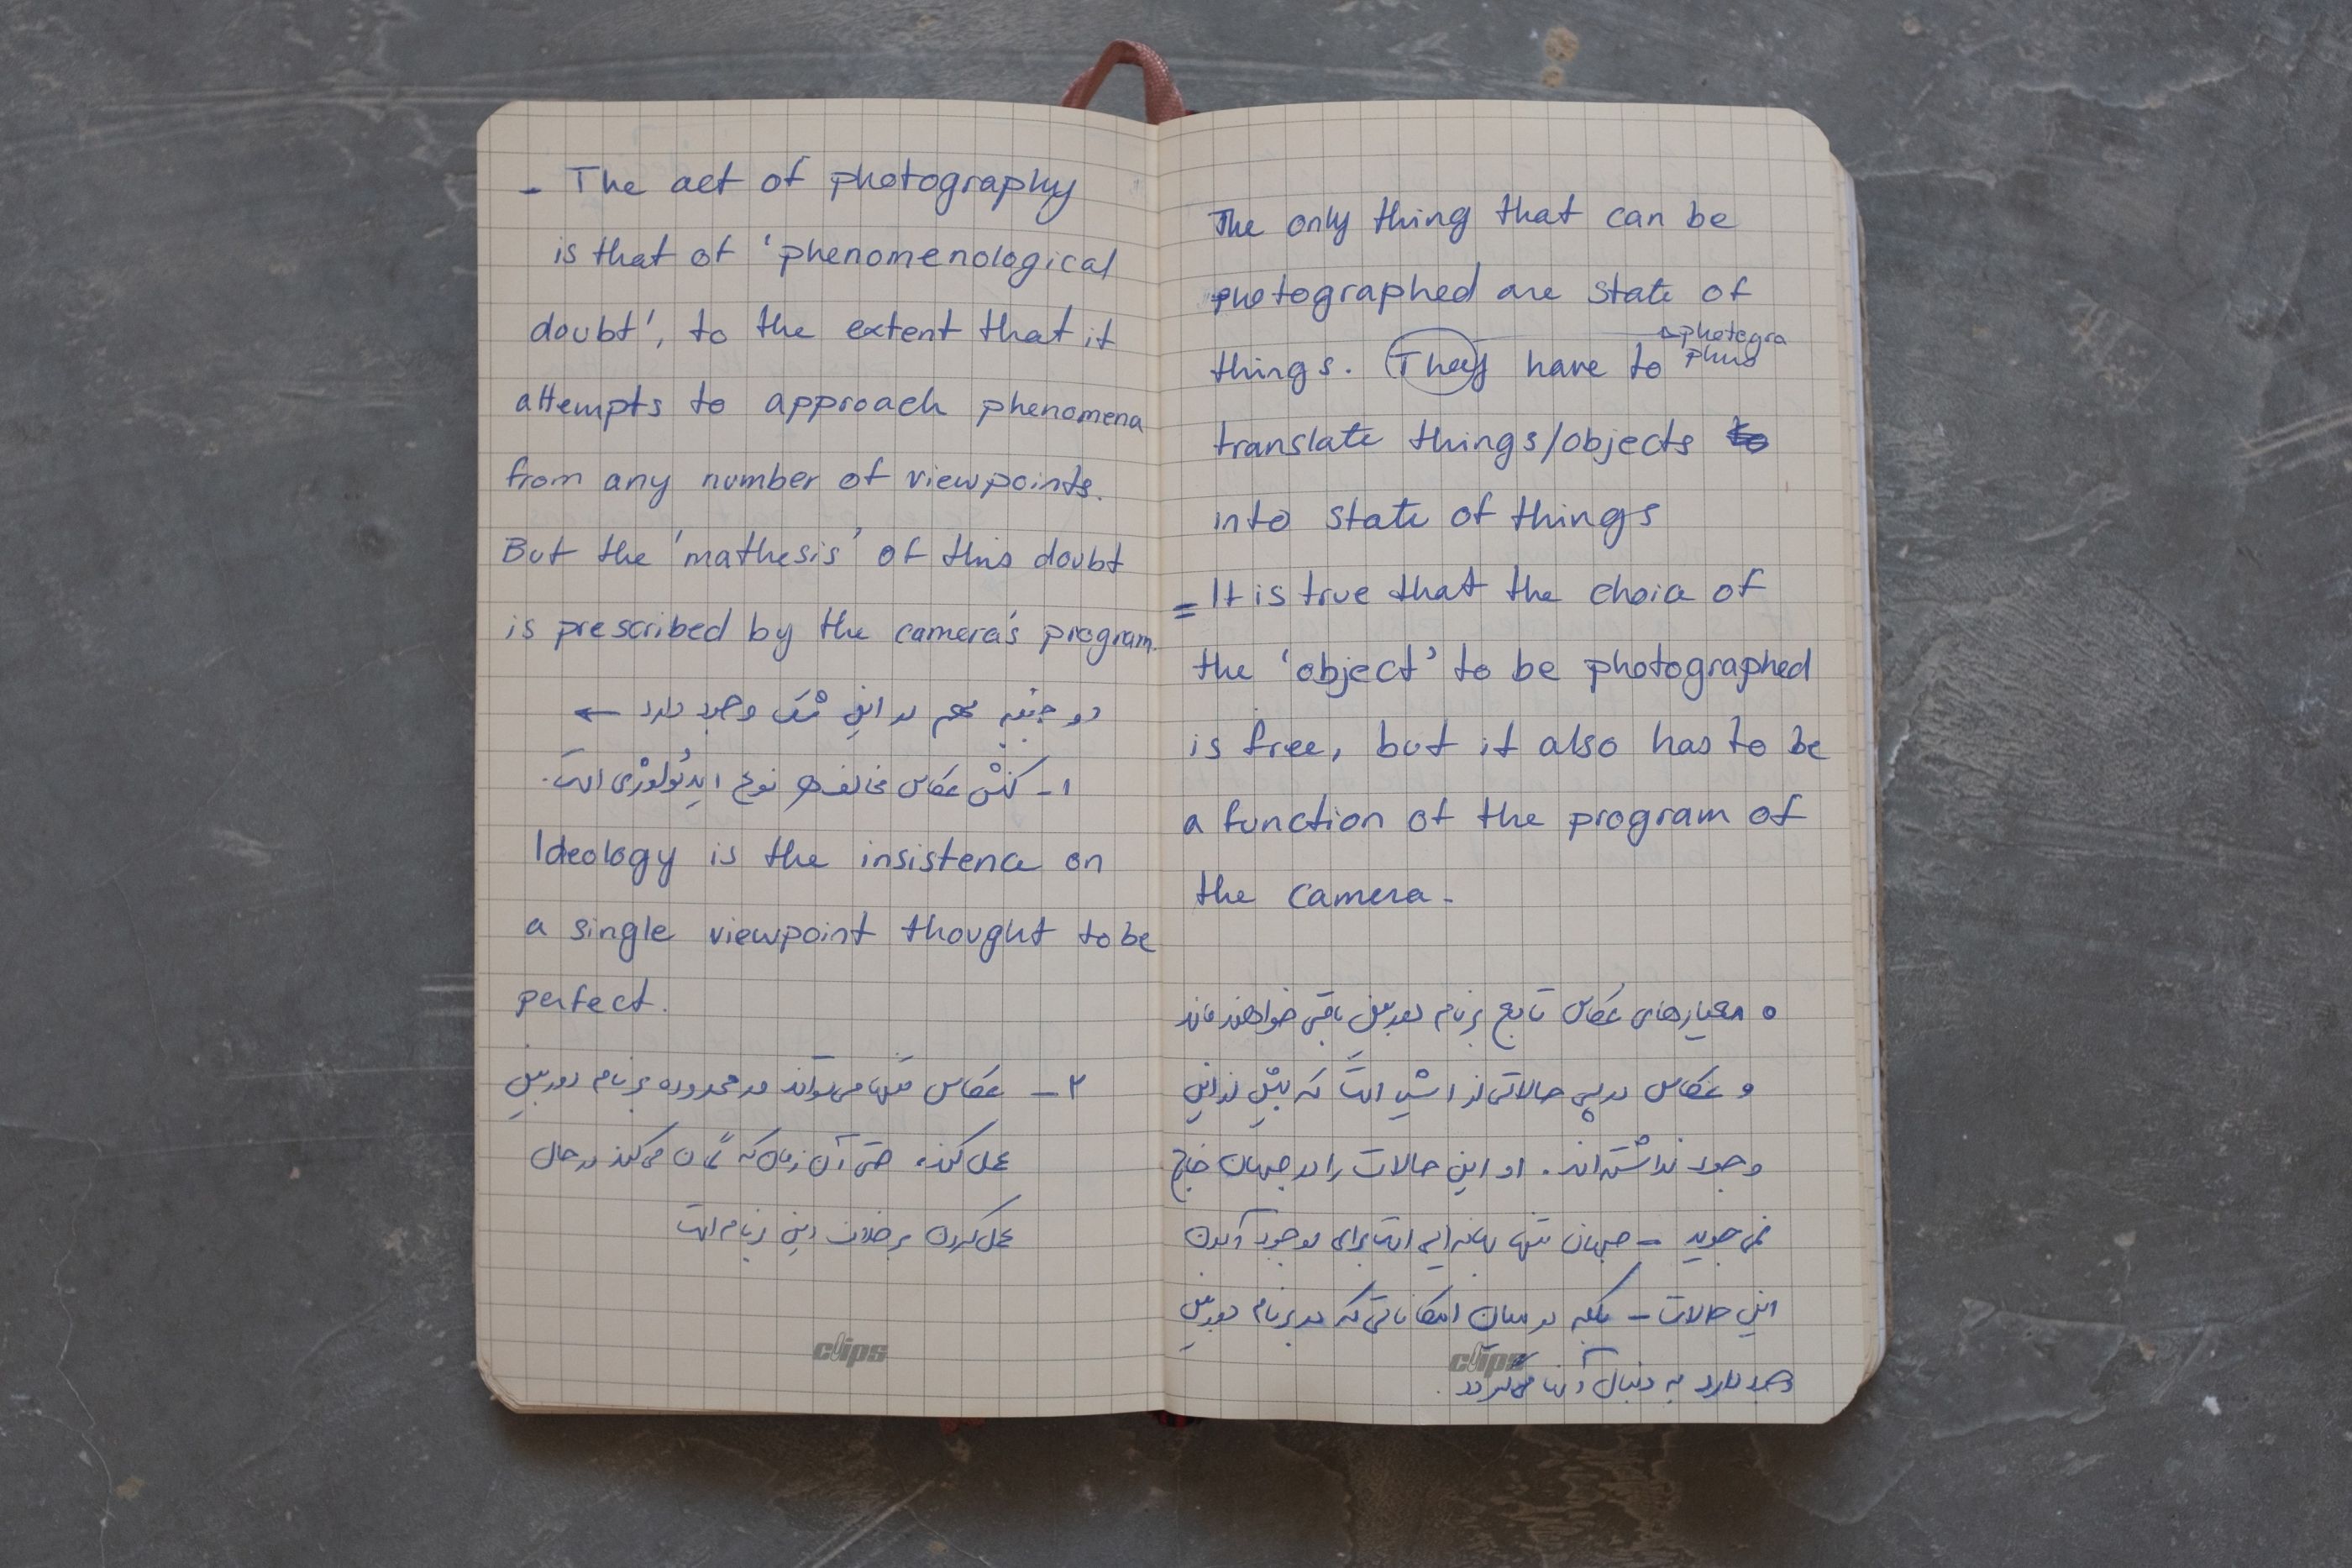 - The act of photography
is that of 'phenomenological
doubt', to the extent that it
attempts to approach phenomena
from any number of viewpoints.
But the 'mathesis' of this doubt
is prescribed by the camera's program.
دو جنبه مهم در این شک وجود دارد ←
۱- کنش عکاس مخالف هر نوع ایدئولوژی است.
Ideology is the insistence on
a single viewpoint thought to be
perfect.
۲- عکاس تنها می‌تواند در محدوده برنامه دوربین
عمل کند، حتی آن زمان که گمان می‌کند در حال
عمل کردن برخلاف این برنامه است
clips
The only thing that can be
photographed are state of
→ photogra
phs
things. They have to
translate things/objects
into state of things
= It is true that the choice of
the 'object' to be photographed
is free, but it also has to be
a function of the program of
the camera.
○ معیارهای عکاس تابع برنامه دوربین باقی خواهند ماند
و عکاس در پی حالاتی از اشیا است که پیش از این
وجود نداشته‌اند. او این حالات را در جهان خارج
نمی‌جوید - جهان تنها بهانه‌ای است برای بوجود آمدن
این حالات - بلکه در میان امکاناتی که در برنامه دوربین
وجود دارد به دنبال آنها می‌گردد.
clips